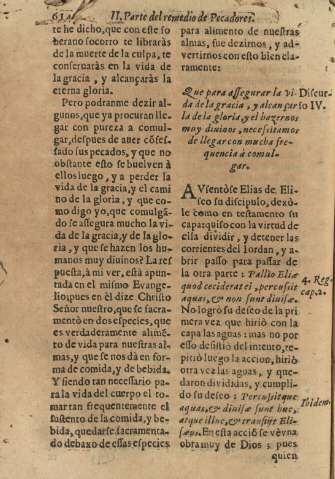 II. Parte del remedio de Pecadores.
te he dicho, que con este so
berano socorro te librarás
de la muerte de la culpa, te
conserarás en la vida de
la gracia, y alcançarás la
eterna gloria.
Pero podranme dezir al
gunos, que ya procuran lle-
gar con pureza a comul-
gar, despues de auer cõfes-
sado sus pecados, y que no
obstante esso se buelven à
ellos luego, y a perder la
vida de la gracia, y el cami
no de la gloria, y que co-
mo digo yo, que comulgã-
do se assegura mucho la vi
da de la gracia, y de la glo-
ria, y que se hazen los hu-
manos muy diuinos? La res
puesta, à mi ver, està apun-
tada en el mismo Evange-
lio, pues en èl dize Christo
Señor nuestro, que se sacra-
mentò en dos especies, que
es verdaderamente alimẽ-
to de vida para nuestras al-
mas, y que se nos dà en for-
ma de comida, y de bebida.
Y siendo tan necessario pa-
ra la vida del cuerpo el to-
mar tan frequentemente el
sustento de la comida, y be-
bida, quedarse sacramenta-
do debaxo de essas especies
para alimento de nuestras
almas, fue dezirnos, y ad-
vertirnos con esto bien cla-
ramente:
Que para assegurar la vi-
da de la gracia, y alcançar
la de la gloria, y el hazernos
muy diuinos, necessitamos
de llegar con mucha fre-
quencia à comul-
gar.
Discur
so IV.
AVsentòse Elias de Eli-
seo su discipulo, dexò-
le como en testamento su
capa risquo con la virtud de
ella dividir, y detener las
corrientes del Iordan, y a-
brir passo para passar de
la otra parte: Pallio Eliæ
quod ceciderat ei, percussit
aquas, & non sunt diuisæ.
4. Reg.
cap. 2.
No logrò su deseo de la pri-
mera vez que hiriò con la
capa las aguas: mas no por
esso desistiò del intento, re-
pitiò luego la accion, hiriò
otra vez las aguas, y que-
daron divididas, y cumpli-
do su deseo: Percussitque
aquas, & diuisæ sunt huc,
atque illuc, & transijt Eli-
sæus. En esta acciõ se vè vna
obra muy de Dios; pues
Ibidem.
quien